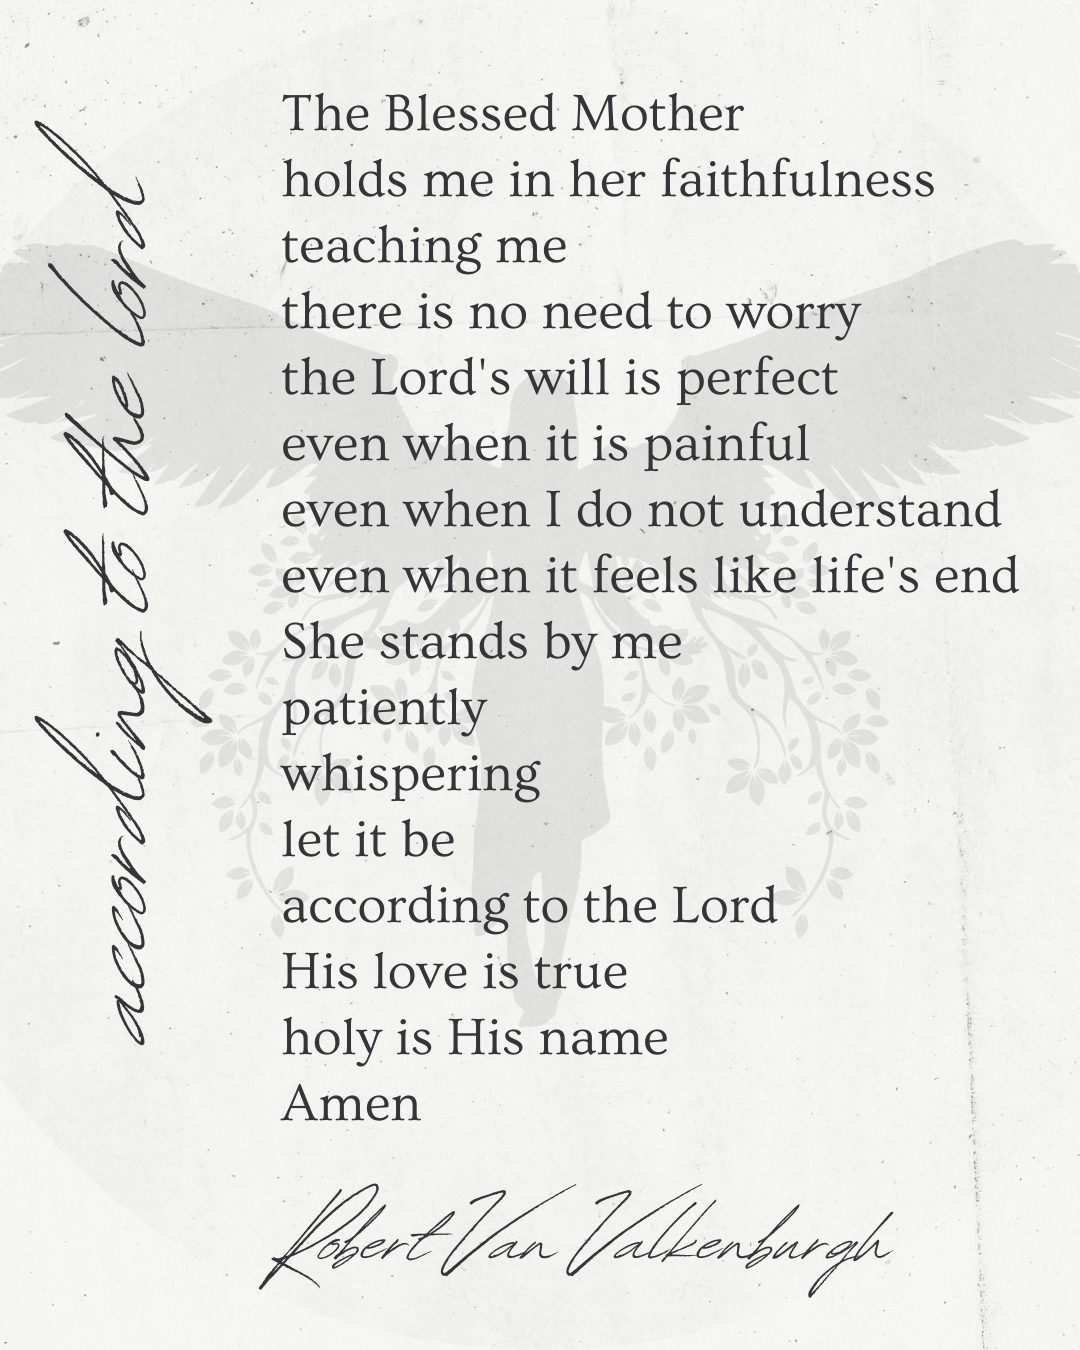 according to the lord
The Blessed Mother
holds me in her faithfulness
teaching me
there is no need to worry
the Lord's will is perfect
even when it is painful
even when I do not understand
even when it feels like life's end
She stands by me
patiently
whispering
let it be
according to the Lord
His love is true
holy is His name
Amen
Robert Van Valkenburgh